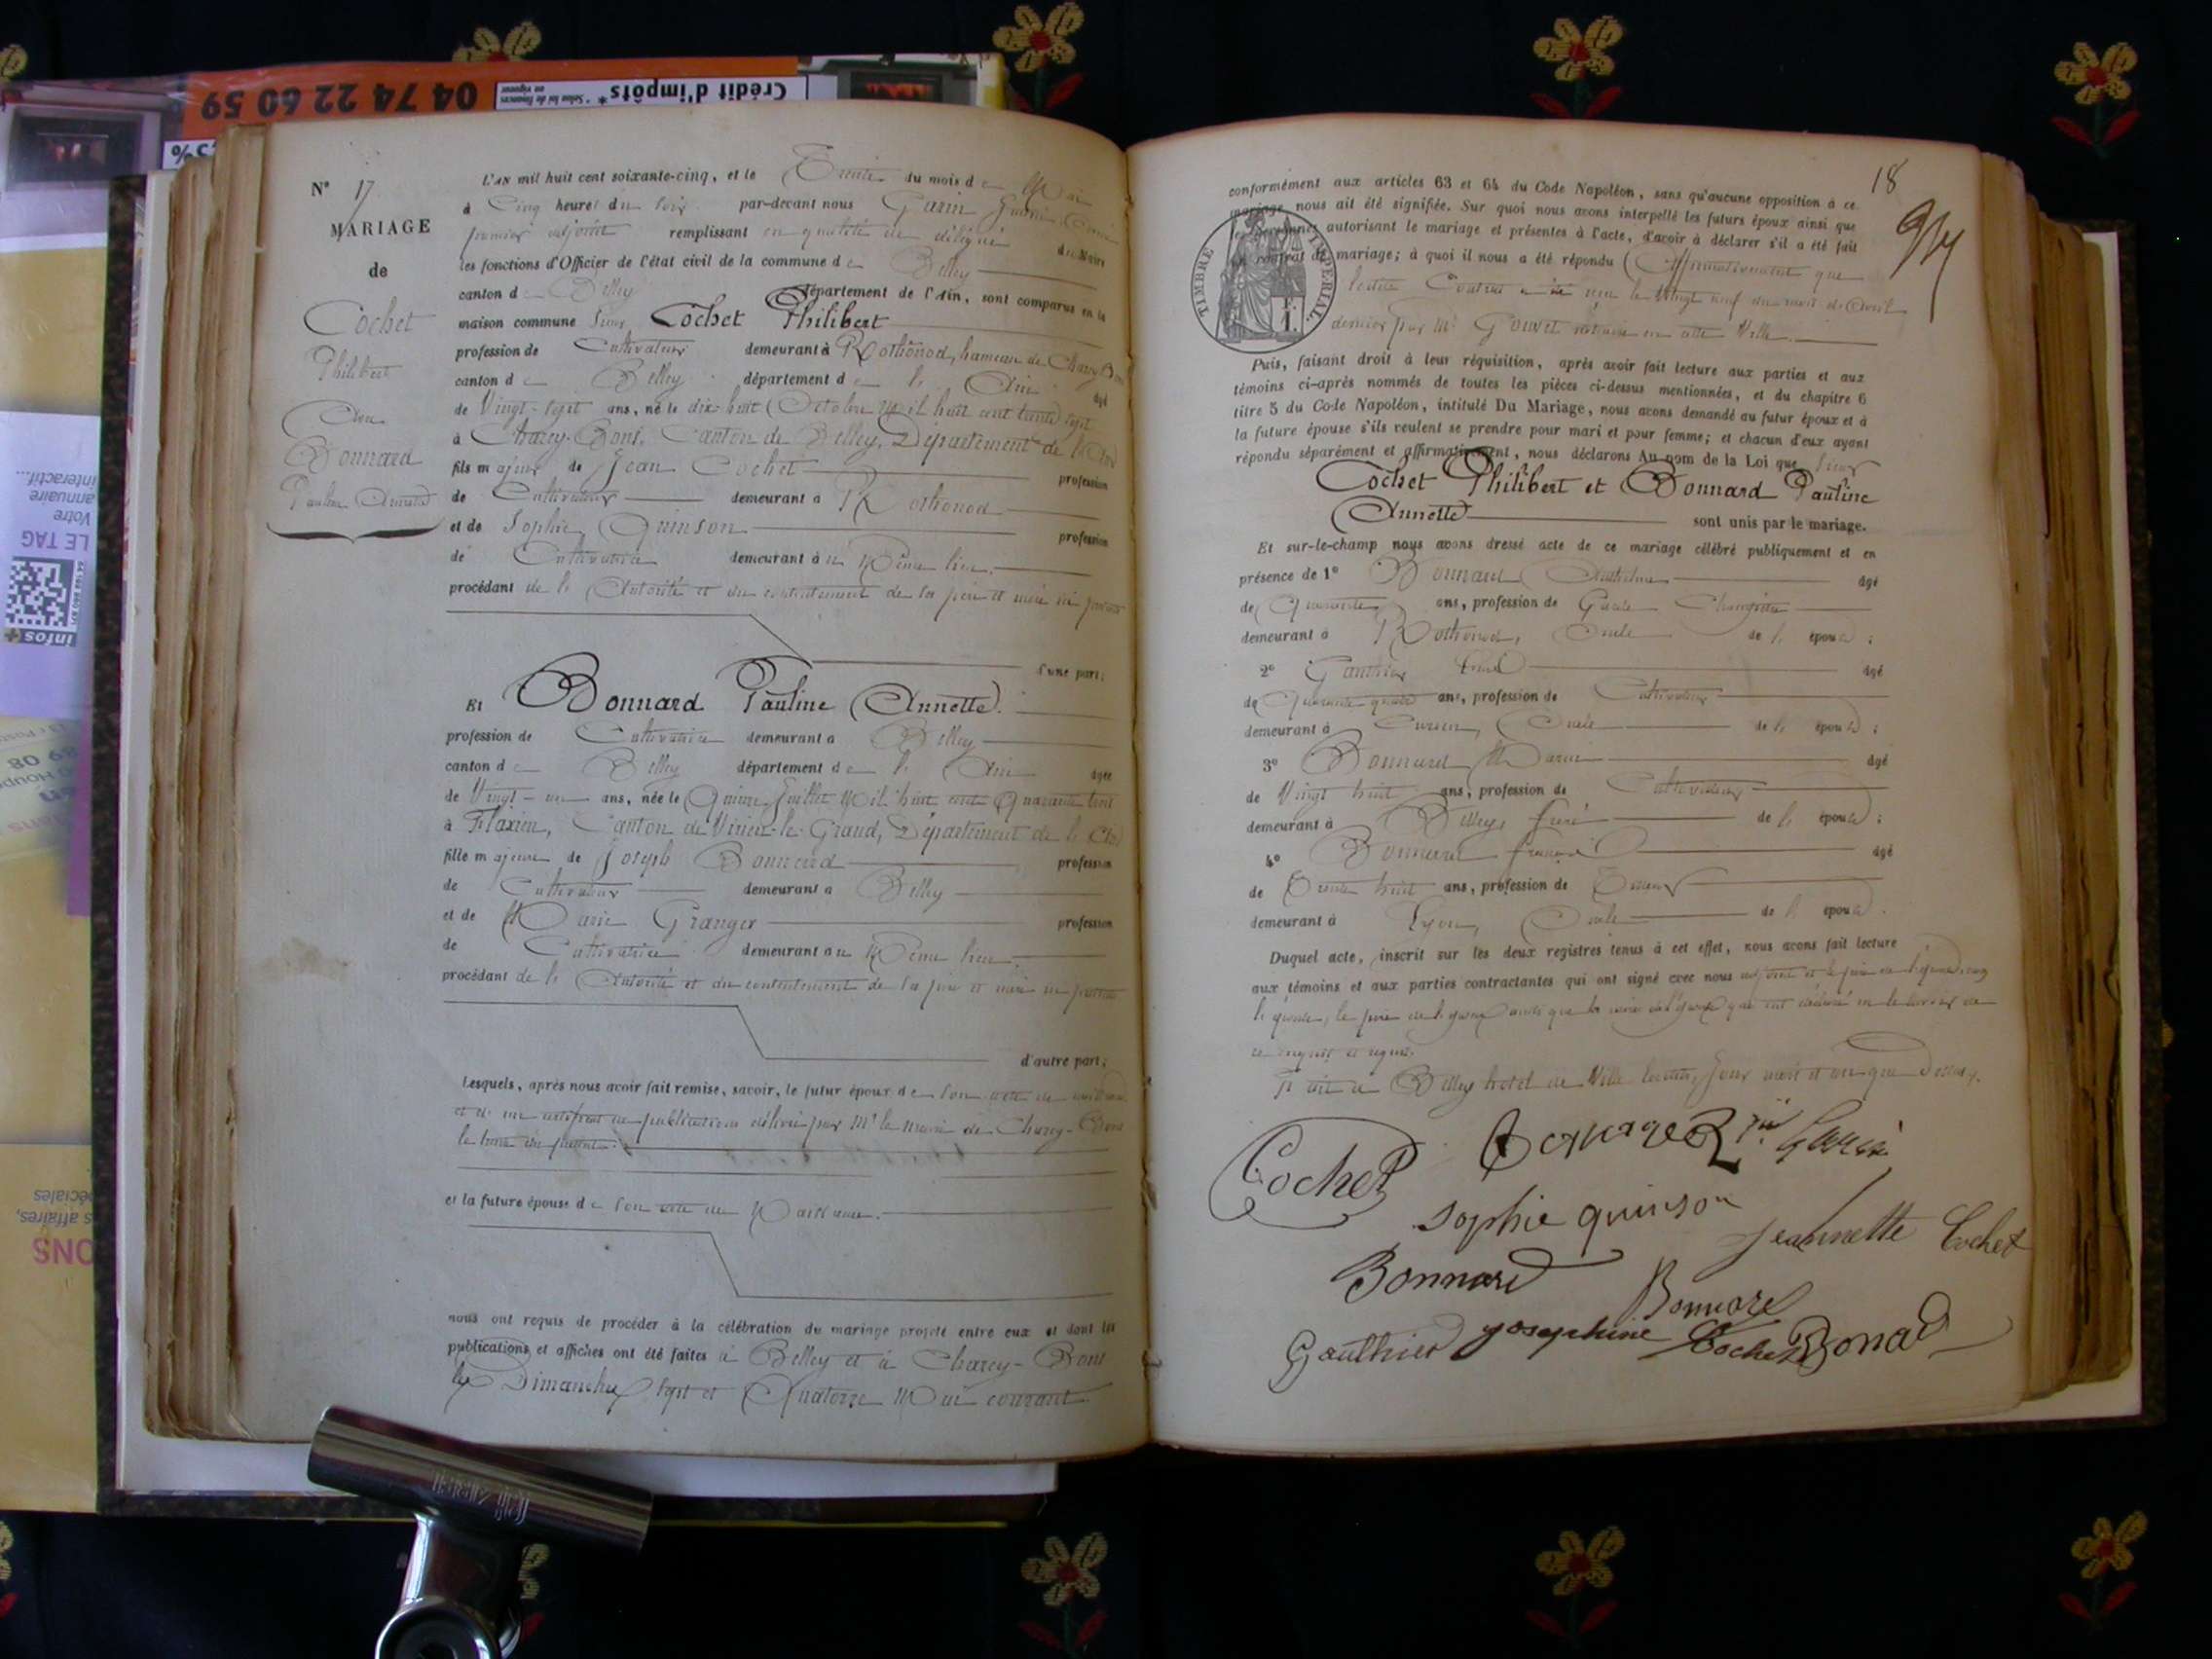 04 74 22 60 59
Crédit d'impôts*
N° 17
MARIAGE
de
Cochet
Philibert
Avec
Bonnard
Pauline Annette
L'AN mil huit cent soixante-cinq, et le Trente du mois de Mai
à Cinq heures du soir par-devant nous Garin
premier adjoint remplissant en qualité de délégué du Maire
les fonctions d'Officier de l'état civil de la commune de Belley
canton de Belley département de l'Ain, sont comparus en la
maison commune sieur Cochet Philibert
profession de Cultivateur demeurant à Rothonod, hameau de Charey-Bons
canton de Belley département de l'Ain âgé
de Vingt-sept ans, né le dix-huit Octobre Mil huit cent trente sept
à Charey-Bons, Canton de Belley, Département de l'Ain
fils majeur de Jean Cochet profession
de Cultivateur demeurant à Rothonod
et de Sophie Quinson profession
de Cultivatrice demeurant au Même lieu.
procédant de l'Autorité et du consentement de ses père et mère ici présents
d'une part;
Et Bonnard Pauline Annette.
profession de Cultivatrice demeurant à Belley
canton de Belley département de l'Ain âgée
de Vingt-un ans, née le Quinze Juillet Mil huit cent Quarante trois
à Flaxieu, Canton de Virieu-le-Grand, Département de l'Ain
fille majeure de Joseph Bonnard profession
de Cultivateur demeurant à Belley
et de Marie Granger profession
de Cultivatrice demeurant au Même lieu.
procédant de l'Autorité et du consentement de ses père et mère ici présents
d'autre part;
Lesquels, après nous avoir fait remise, savoir, le futur époux de son acte de naissance
et d'un certificat de publications délivré par Mr le maire de Charey-Bons
et la future épouse de son acte de Naissance.
nous ont requis de procéder à la célébration du mariage projeté entre eux et dont les
publications et affiches ont été faites à Belley et à Charey-Bons
les Dimanches sept et Quatorze Mai courant
18
conformément aux articles 63 et 64 du Code Napoléon, sans qu'aucune opposition à ce
mariage nous ait été signifiée. Sur quoi nous avons interpellé les futurs époux ainsi que
les personnes autorisant le mariage et présentes à l'acte, d'avoir à déclarer s'il a été fait
un contrat de mariage; à quoi il nous a été répondu Affirmativement que
le Contrat a été reçu le Vingt neuf du mois de Avril
dernier par Me Gouvet notaire en cette Ville.
TIMBRE IMPERIAL
1 F.
Puis, faisant droit à leur réquisition, après avoir fait lecture aux parties et aux
témoins ci-après nommés de toutes les pièces ci-dessus mentionnées, et du chapitre 6
titre 5 du Code Napoléon, intitulé Du Mariage, nous avons demandé au futur époux et à
la future épouse s'ils veulent se prendre pour mari et pour femme; et chacun d'eux ayant
répondu séparément et affirmativement, nous déclarons Au nom de la Loi que sieur
Cochet Philibert et Bonnard Pauline
Annette sont unis par le mariage.
Et sur-le-champ nous avons dressé acte de ce mariage célébré publiquement et en
présence de 1° Bonnard Anthelme âgé
de Quarante ans, profession de Garde Champêtre
demeurant à Rothonod, Oncle de l'épouse;
2° Gauthier âgé
de Quarante quatre ans, profession de Cultivateur
demeurant à Curien, Oncle de l'épouse;
3° Bonnard Marin âgé
de Vingt huit ans, profession de Cultivateur
demeurant à Belley, frère de l'épouse;
4° Bonnard François âgé
de Trente huit ans, profession de
demeurant à Lyon, Oncle de l'épouse.
Duquel acte, inscrit sur les deux registres tenus à cet effet, nous avons fait lecture
aux témoins et aux parties contractantes qui ont signé avec nous adjoint et le père de l'épouse, non
l'épouse, le père de l'époux ainsi que la mère de l'épouse qui ont déclaré ne le savoir de
ce enquis et requis.
Fait à Belley hotel de Ville lesdits jour mois et an que dessus.
Cochet
Garin
sophie quinson
Jeannette Cochet
Bonnard
Bonnard
Gauthier
josephine Cochet
Bonard